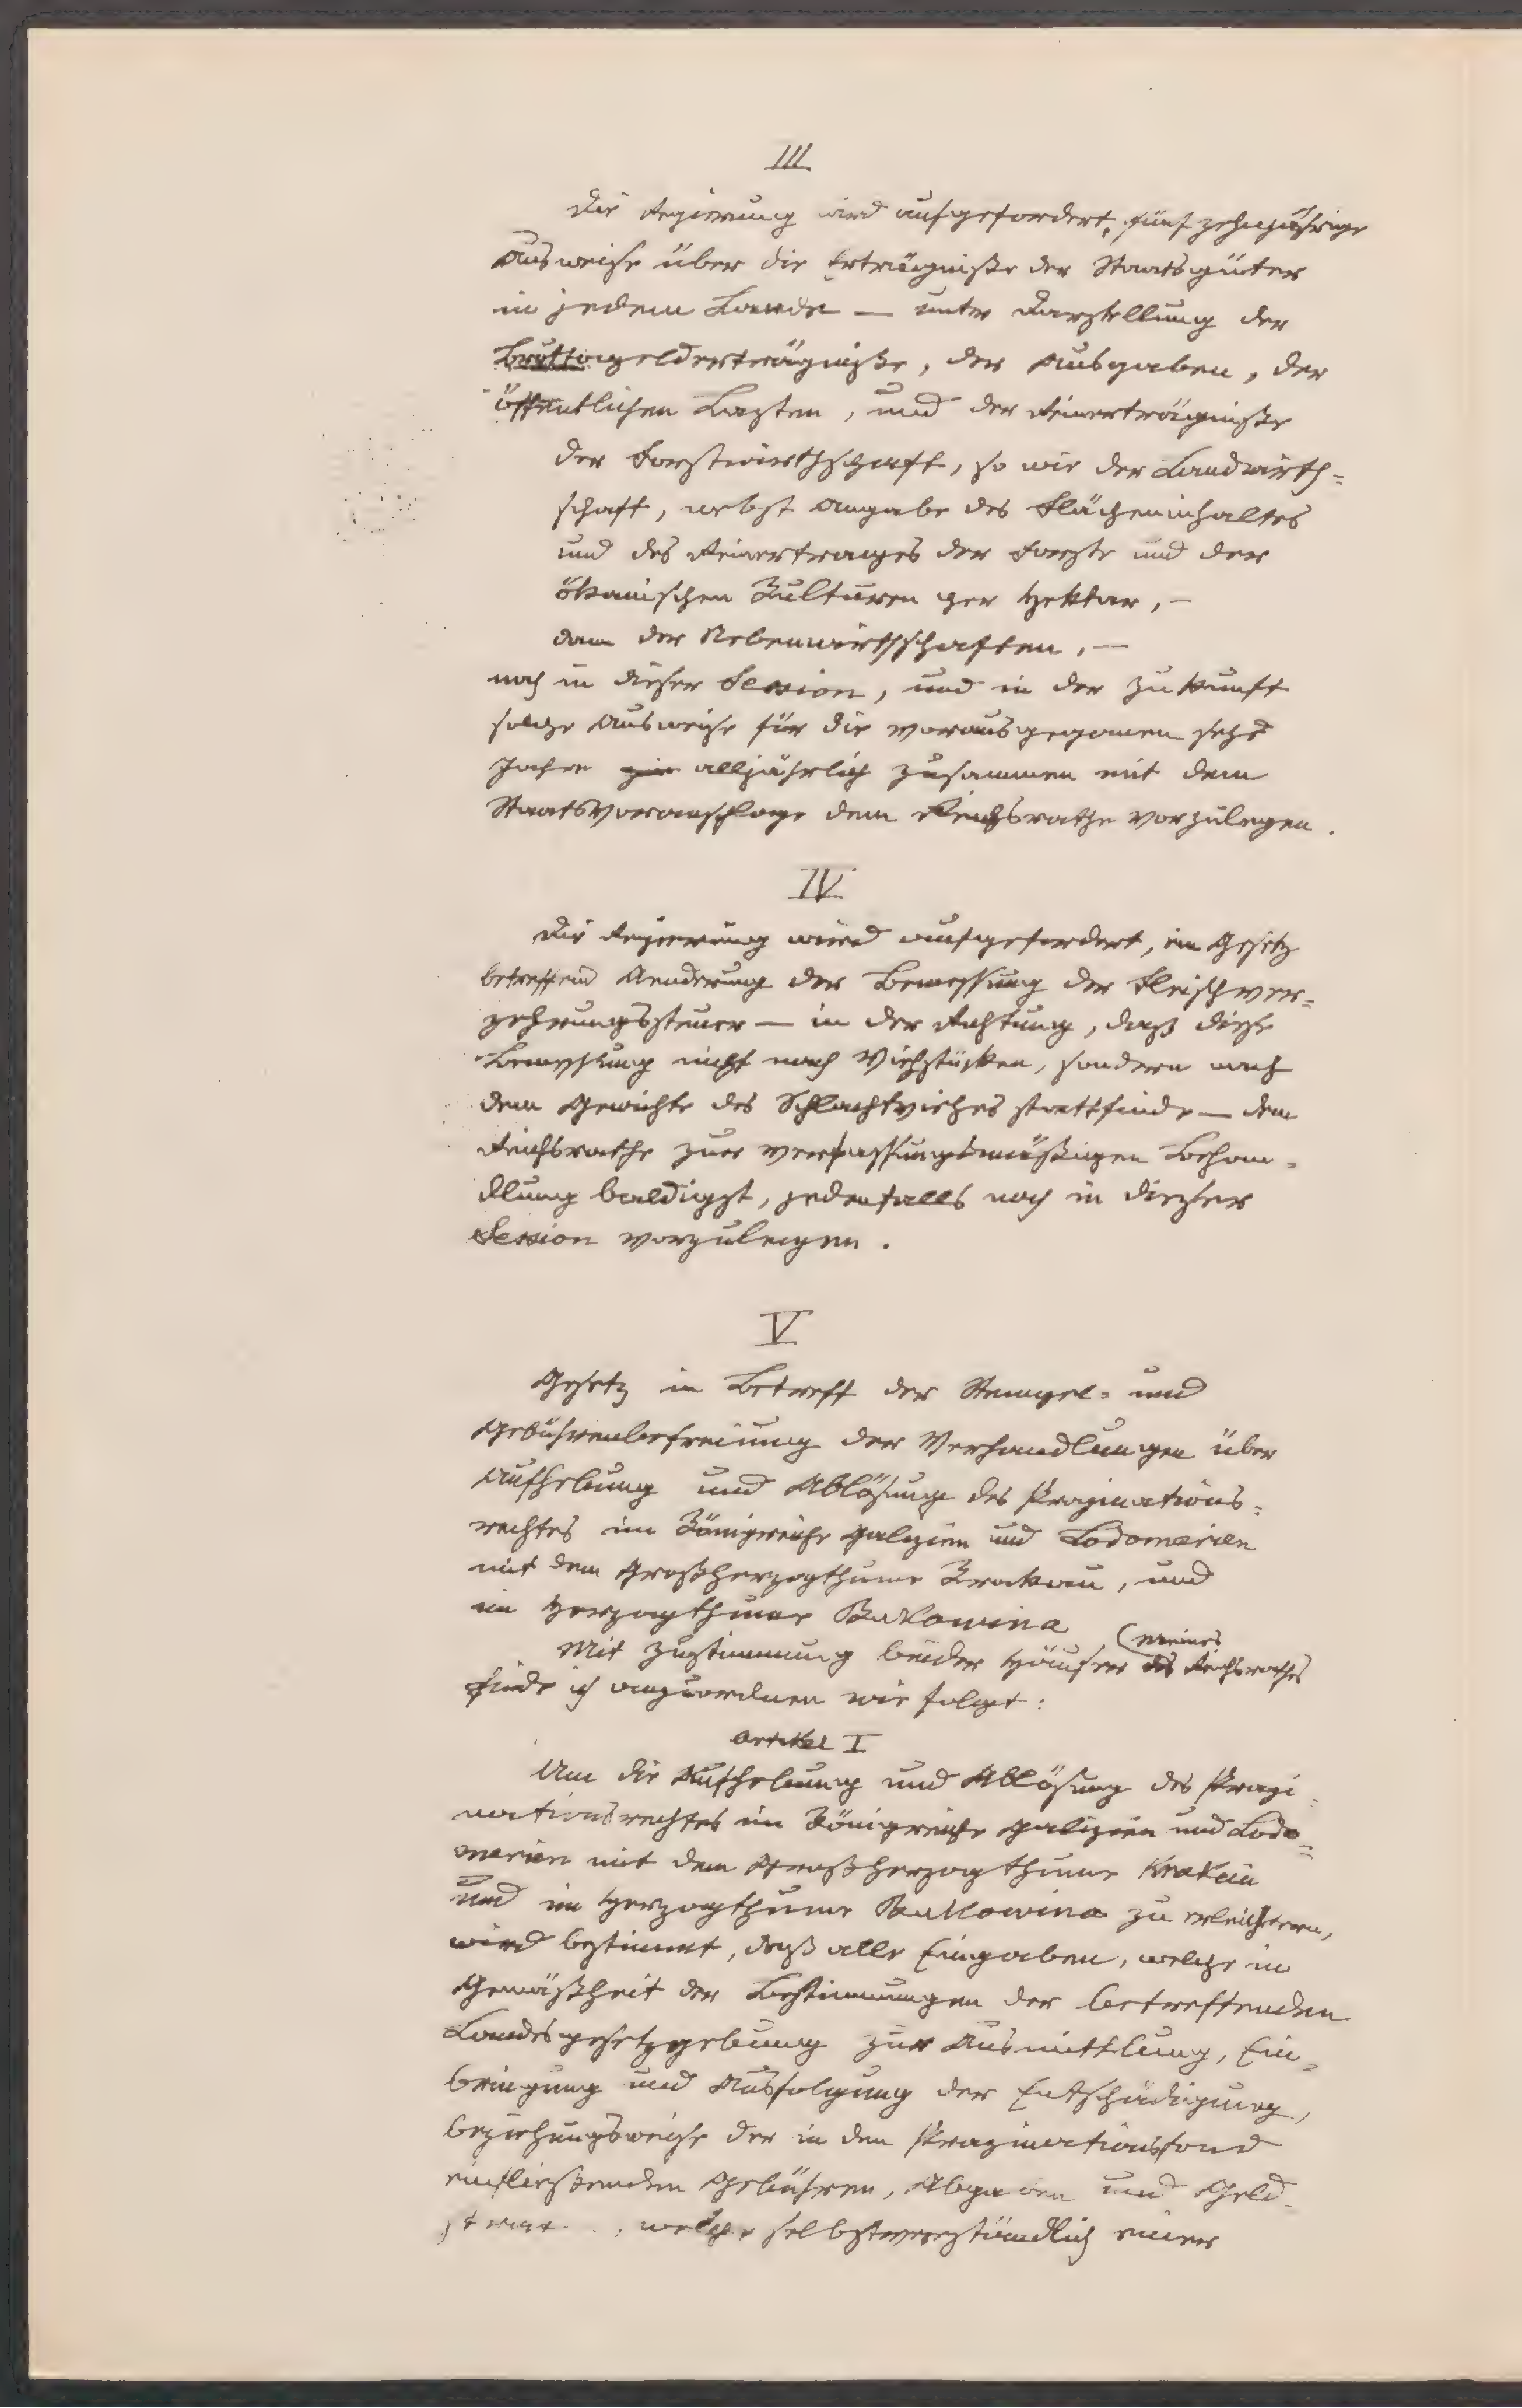 III
Die Regierung wird aufgefordert, fünfzehnjährige
Ausweise über die Erträgniße der Staatsgüter
in jedem Lande — unter Darstellung der
Bruttogelderträgniße, der Ausgaben, der
öffentlichen Lasten, und der Reinerträgniße
der Forstwirthschaft, so wie der Landwirth=
schaft, nebst Angabe des Flächeninhaltes
und des Reinertrages der Forste und der
ökonischen Kulturen per Hektar, —
dann der Nebenwirthschaften, —
noch in dieser Session, und in der Zukunft
solche Ausweise für die vorausgegangenen sechs
Jahre alljährlich zusammen mit dem
Staatsvoranschlage dem Reichsrathe vorzulegen.
IV
Die Regierung wird aufgefordert, ein Gesetz
betreffend Aenderung der Bemessung der Fleischver=
zehrungssteuer — in der Richtung, daß diese
Bemessung nicht nach Viehstücken, sondern nach
dem Gewichte des Schlachtviehes stattfinde — dem
Reichsrathe zur verfassungsmäßigen Behan=
dlung baldigst, jedenfalls noch in dieser
Session vorzulegen.
V
Gesetz in Betreff der Stempel= und
Gebührenbefreiung der Verhandlungen über
Aufhebung und Ablösung des Propinations=
rechtes im Königreiche Galizien und Lodomerien
mit dem Großherzogthume Krakau, und
im Herzogthume Bukowina
Mit Zustimmung beider Häuser (meines des Reichsrathes
finde ich anzuordnen wie folgt:
Artikel I
Um die Aufhebung und Ablösung des Propi=
nationsrechtes im Königreiche Galizien und Lodo=
merien mit dem Großherzogthume Krakau
und im Herzogthume Bukowina zu erleichtern,
wird bestimmt, daß alle Eingaben, welche in
Gemäßheit der Bestimmungen der betreffenden
Landesgesetzgebung zur Ausmittlung, Ein=
bringung und Ausfolgung der Entschädigung,
beziehungsweise der in den Propinationsfond
einfließenden Gebühren, Abgaben und Geld=
welche selbstverständlich einer